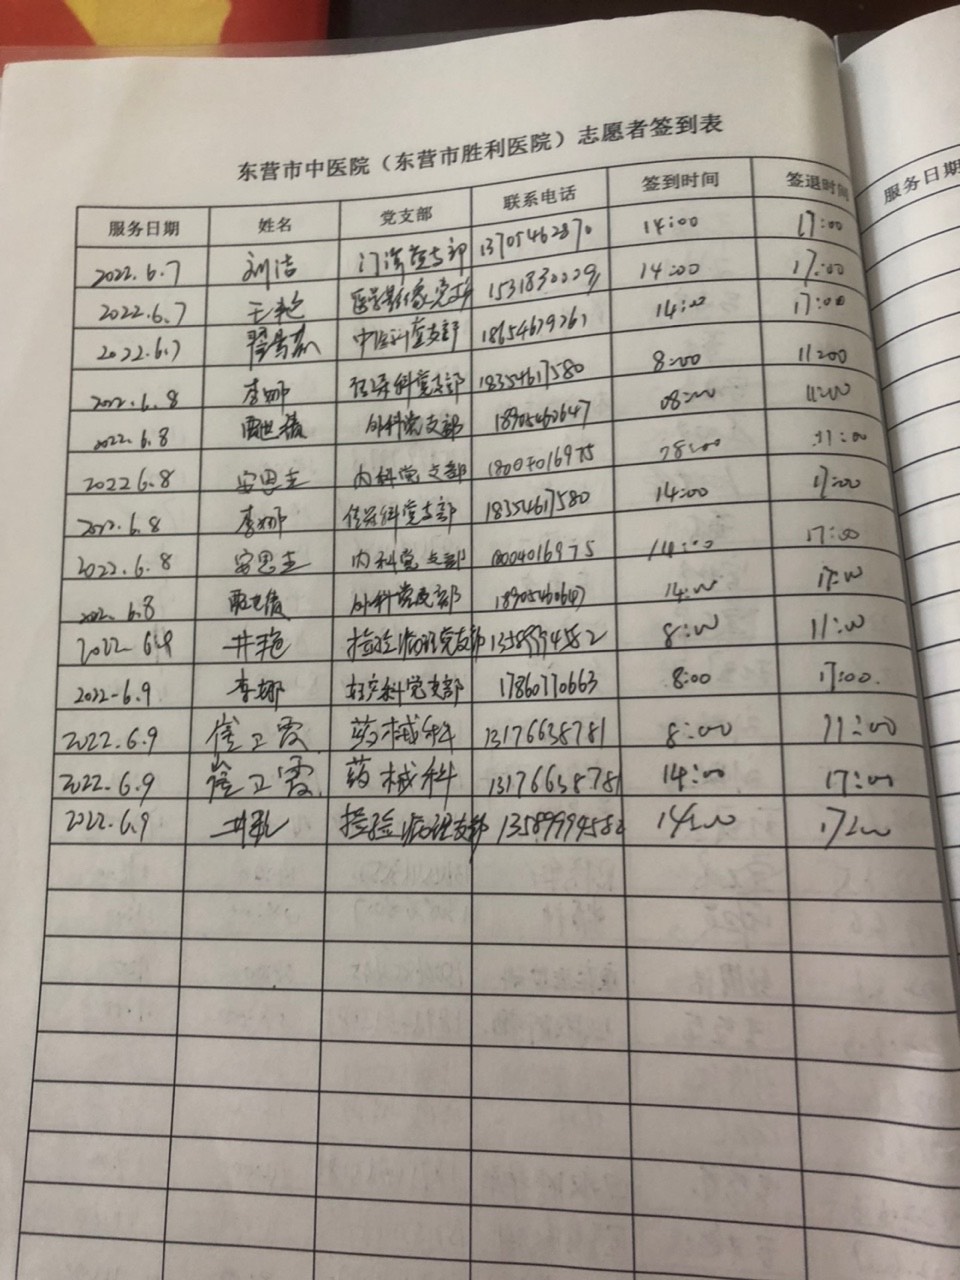 东营市中医院（东营市胜利医院）志愿者签到表
服务日期 姓名 党支部 联系电话 签到时间 签退时间
2022.6.7 刘洁 门诊党支部 13705462870 14:00 17:00
2022.6.7 王艳 医学影像党支部 14:00 17:00
2022.6.7 中医科党支部 18654629261 14:00 17:00
2022.6.8 李娜 传染科党支部 18354617580 8:00 11:00
2022.6.8 外科党支部 18905460647 08:00 11:00
2022 6.8 安思圭 内科党支部 11:00
2022.6.8 李娜 传染科党支部 18354617580 14:00 17:00
2022.6.8 安思圭 内科党支部 14:00 17:00
2022.6.8 外科党支部 18905460647 14:00 17:00
2022 6.9 井艳 检验病理党支部 13589994582 8:00 11:00
2022-6.9 李娜 妇产科党支部 17860770663 8:00 17:00.
2022.6.9 崔卫霞 药械科 13176638781 8:00 11:00
2022.6.9 崔卫霞 药械科 13176638781 14:00 17:00
2022.6.9 检验病理支部 13589994582 14:00 17:00
服务日期